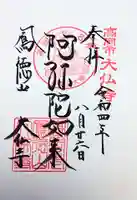 高岡市大仏寺
奉拝
令和四年
八月廿六日
阿弥陀如来
鳳徳山
大仏寺